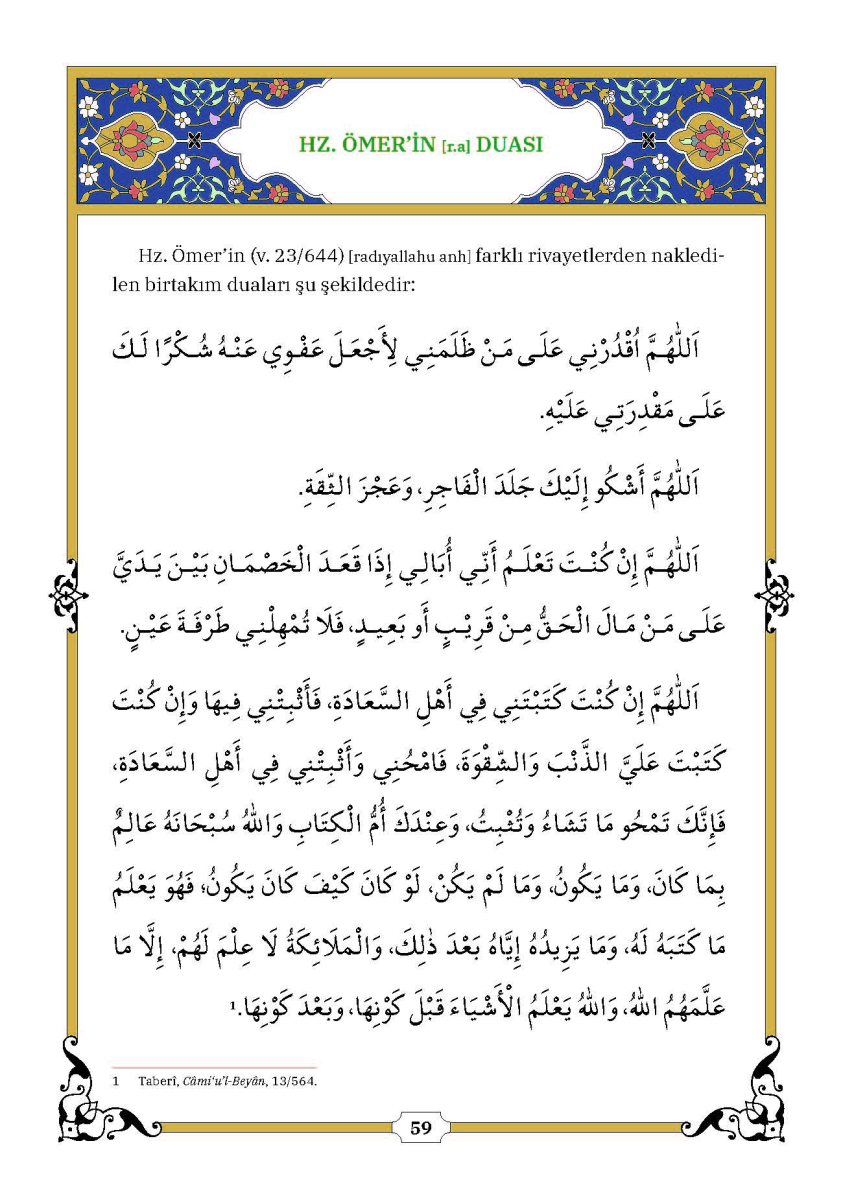 HZ. ÖMER’İN [r.a] DUASI
Hz. Ömer’in (v. 23/644) [radıyallahu anh] farklı rivayetlerden nakledi-
len birtakım duaları şu şekildedir:
اَللّٰهُمَّ اُقْدُرْنِي عَلَى مَنْ ظَلَمَنِي لِأَجْعَلَ عَفْوِي عَنْهُ شُكْرًا لَكَ
عَلَى مَقْدِرَتِي عَلَيْهِ.
اَللّٰهُمَّ أَشْكُو إِلَيْكَ جَلَدَ الْفَاجِرِ، وَعَجْزَ الثِّقَةِ.
اَللّٰهُمَّ إِنْ كُنْتَ تَعْلَمُ أَنِّي أُبَالِي إِذَا قَعَدَ الْخَصْمَانِ بَيْنَ يَدَيَّ
عَلَى مَنْ مَالَ الْحَقُّ مِنْ قَرِيْبٍ أَو بَعِيدٍ، فَلَا تُمْهِلْنِي طَرْفَةَ عَيْنٍ.
اَللّٰهُمَّ إِنْ كُنْتَ كَتَبْتَنِي فِي أَهْلِ السَّعَادَةِ، فَأَثْبِتْنِي فِيهَا وَإِنْ كُنْتَ
كَتَبْتَ عَلَيَّ الذَّنْبَ وَالشِّقْوَةَ، فَامْحُنِي وَأَثْبِتْنِي فِي أَهْلِ السَّعَادَةِ،
فَإِنَّكَ تَمْحُو مَا تَشَاءُ وَتُثْبِتُ، وَعِنْدَكَ أُمُّ الْكِتَابِ وَاللّٰهُ سُبْحَانَهُ عَالِمٌ
بِمَا كَانَ، وَمَا يَكُونُ، وَمَا لَمْ يَكُنْ، لَوْ كَانَ كَيْفَ كَانَ يَكُونُ؛ فَهُوَ يَعْلَمُ
مَا كَتَبَهُ لَهُ، وَمَا يَزِيدُهُ إِيَّاهُ بَعْدَ ذٰلِكَ، وَالْمَلَائِكَةُ لَا عِلْمَ لَهُمْ، إِلَّا مَا
عَلَّمَهُمُ اللّٰهُ، وَاللّٰهُ يَعْلَمُ الْأَشْيَاءَ قَبْلَ كَوْنِهَا، وَبَعْدَ كَوْنِهَا.¹
1 Taberî, Câmi‘u’l-Beyân, 13/564.
59